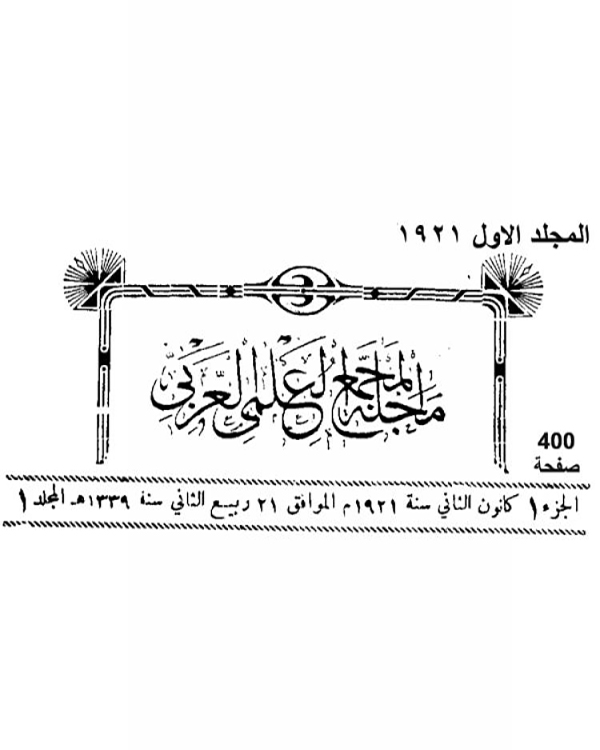 المجلد الاول ١٩٢١
مجلة المجمع العلمي العربي
400
صفحة
الجزء ١ كانون الثاني سنة ١٩٢١م الموافق ٢١ ربيع الثاني سنة ١٣٣٩هـ المجلد ١